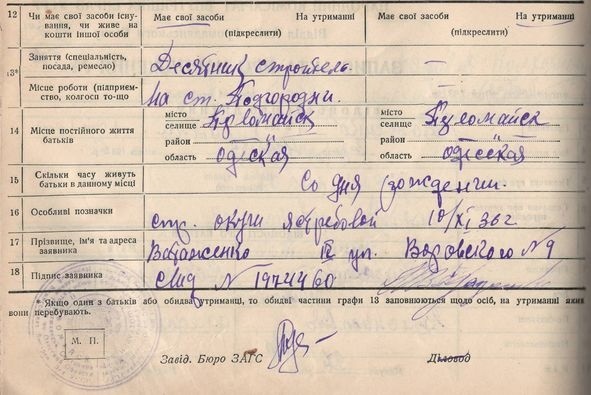 12 Чи має свої засоби існування, чи живе на кошти іншої особи
Має свої засоби На утриманні
(підкреслити)
Має свої засоби На утриманні
(підкреслити)
13* Заняття (спеціальність, посада, ремесло)
Десятник строитель. —
Місце роботи (підприємство, колгосп то-що
На ст. Подгородня.
14 Місце постійного життя батьків
місто селище Первомайск
район —
область Одеская
місто селище Первомайск
район —
область Одесская
15 Скільки часу живуть батьки в данному місці
Со дня рождении.
16 Особливі позначки
стр. окуш ястребовой 10/XI 36 г
17 Прізвище, ім'я та адреса заявника
ул. Воровского № 9
18 Підпис заявника
№ 1974460
* Якщо один з батьків або обидва утриманці, то обидві частини графи 13 заповнюються щодо осіб, на утриманні яких вони перебувають.
М. П.
Завід. Бюро ЗАГС
Діловод